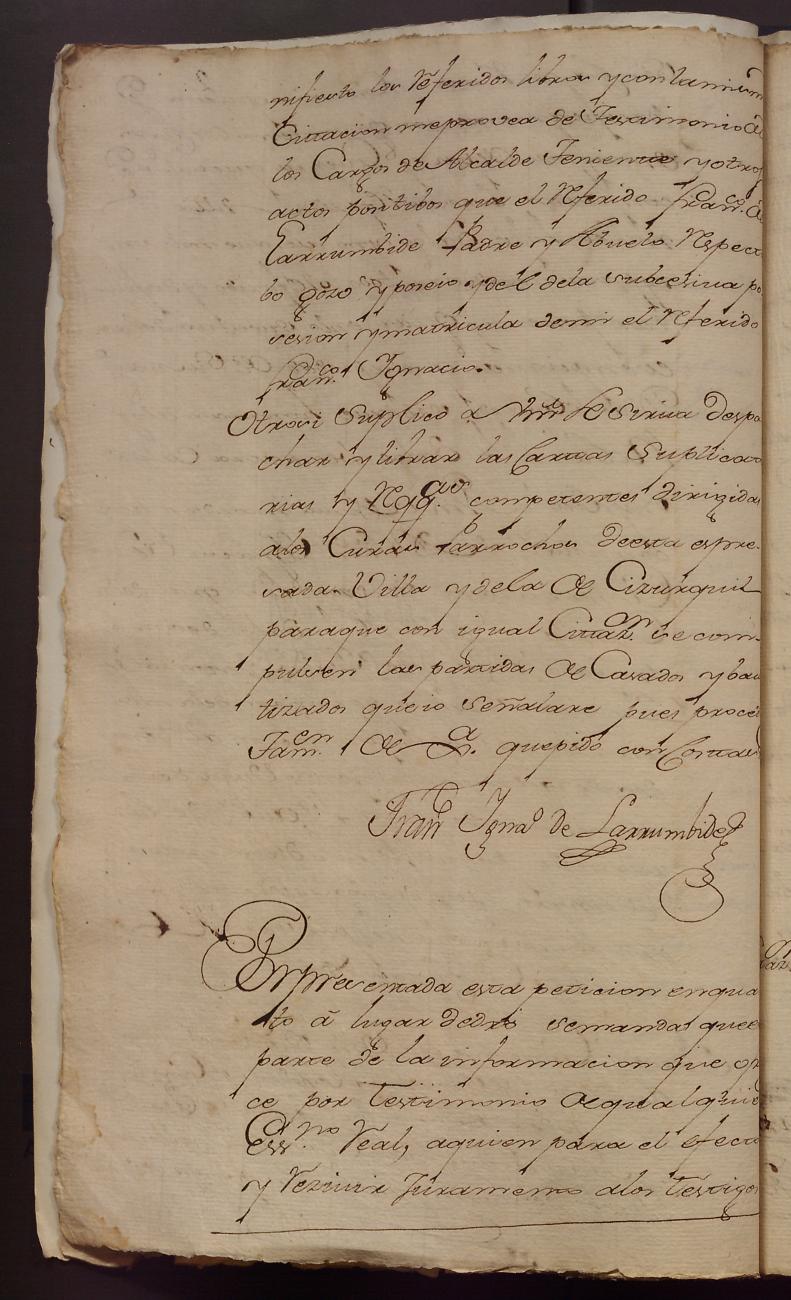 nifiesto los referidos libros y con la misma
Cittacion me provea de Testimonio de
los Cargos de Alcalde Teniente y otros
actos positibos que el referido Fran.co de
Larrumbide Padre y Abuelo respecti
bo gozo y poseio y de el de la subcesiva po
sesion y matricula de mi el referido
Fran.co Ignacio.
Otrosi Suplico a Vmd se sirva despa
char y librar las Cartas Suplicato
rias y Reqq.as competentes dirigidas
a los Curas Parrochos de esta espre
sada Villa y de la de Cizurquil
para que con igual Cittaz.on se com
pulsen las partidas de Casados y bau
tizados que io señalare pues proce
de Justicia que pido con Costas
Fran.co Ign.o de Larrumbide
Por presentada esta peticion en qua
to à lugar de dro se manda que
parte de la informacion que ofre
ce por Testimonio de qualquie
Ess.no Real, a quien para el efecto
y rezivir Juramento a los testigos